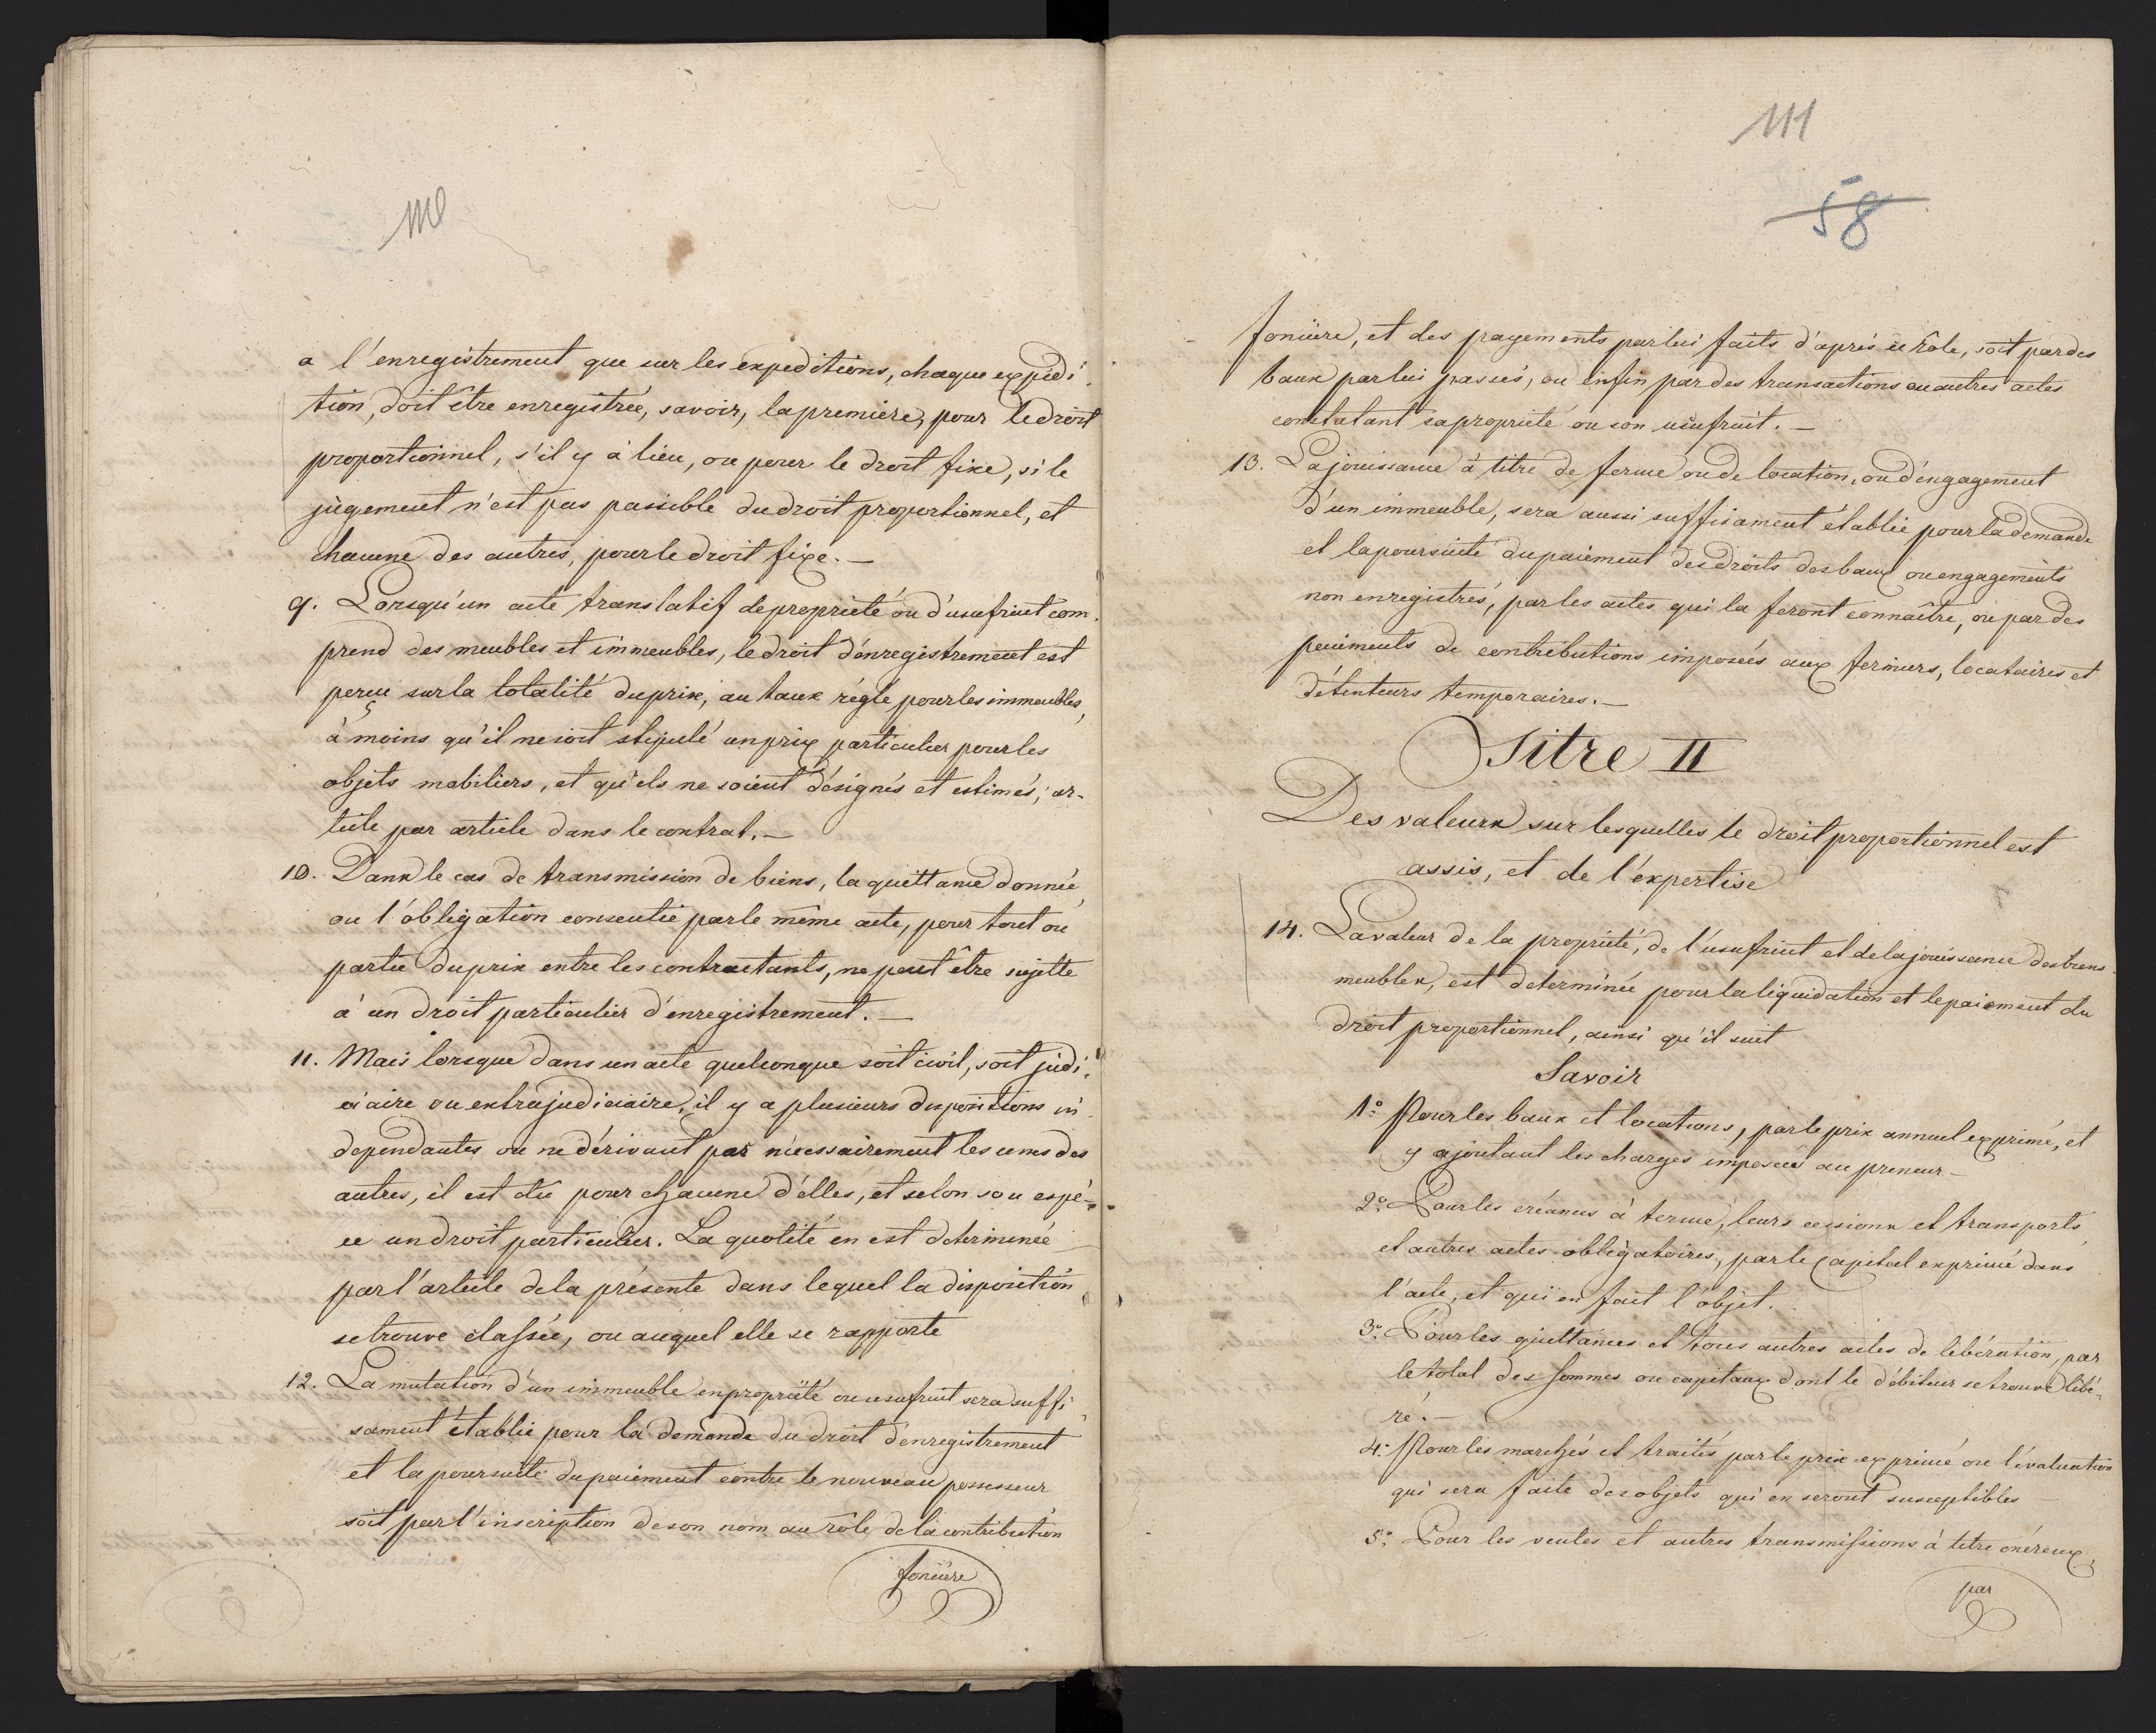 110
a l'enregistrement que sur les expeditions, chaque expédi
tion, doit être enregistrée, savoir, la premiere, pour le droit
proportionnel, s'il y à lieu, ou pour le droit fixe, si le
jugement n'est pas passible du droit proportionnel, et
chacune des autres, pour le droit fixe. —
9. Lorsqu'un acte translatif de propriété ou d'usufruit com-
prend des meubles et immeubles, le droit d'enregistrement est
perçu sur la totalité du prix, au taux réglé pour les immeubles,
à moins qu'il ne soit stipulé un prix particulier pour les
objets mobiliers, et qu'ils ne soient désignés et estimés, ar-
ticle par article dans le contrat. —
10. Dans le cas de transmission de biens, la quittance donnée,
ou l'obligation consentie par le même acte, pour tout ou
partie du prix entre les contractants, ne peut être sujette
à un droit particulier d'enregistrement. —
11. Mais lorsque dans un acte quelconque soit civil, soit judi-
ciaire ou extrajudiciaire, il y a plusieurs dispositions in
dependantes ou ne dérivant pas nécessairement les unes des
autres, il est dû pour chacune d'elles, et selon son espè-
ce un droit particulier. La quotité en est determinée
par l'article de la présente dans lequel la disposition
se trouve classée, ou auquel elle se rapporte
12. La mutation d'un immeuble en propriété ou usufruit sera suffi
sament établie pour la demande du droit d'enregistrement
et la poursuite du paiement contre le nouveau possesseur
soit par l'inscription de son nom au rôle de la contribution
foncière
111
58
foncière, et des payements par lui faits d'après ce rôle, soit par des
baux par lui passés, ou enfin par des transactions ou autres actes
constatant sa propriété ou son usufruit. —
13. La jouissance à titre de ferme ou de location, ou d'engagement
d'un immeuble, sera aussi suffisament établie pour la demande
et la poursuite du paiement des droits des baux ou engagements
non enregistrés, par les actes qui la feront connaître, ou par des
paiments de contributions imposées aux fermiers, locataires et
détenteurs temporaires. —
Titre II
Des valeurs sur lesquelles le droit proportionnel est
assis, et de l'expertise
14. La valeur de la propriété, de l'usufruit et de la jouissance des biens
meubles, est determinée pour la liquidation et le paiement du
droit proportionnel, ainsi qu'il suit
Savoir
1° Pour les baux et locations, par le prix annuel exprimé, et
y ajoutant les charges imposées au preneur —
2° Pour les créances à terme, leurs cessions et transports
et autres actes obligatoires, par le capital exprimé dans
l'acte, et qui en fait l'objet.
3° Pour les quittances et tous autres actes de libération, par
le total des sommes ou capitaux dont le débiteur se trouve libé-
ré. —
4° Pour les marchés et traités par le prix exprimé ou l'évaluation
qui sera faite des objets qui en seront susceptibles —
5° Pour les ventes et autres transmissions à titre onéreux,
par